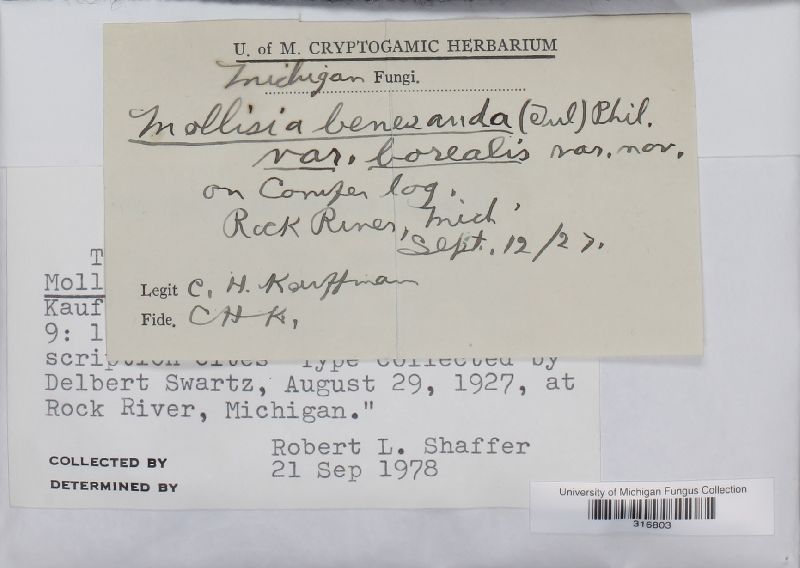 U. of M. CRYPTOGAMIC HERBARIUM
Michigan Fungi.
Mollisia benesuada (Tul) Phil.
var. borealis var. nov.
on Conifer log.
Rock River, Mich.
Sept. 12/27.
Legit C. H. Kauffman
Fide. CHK.
T
Moll
Kauf
9: 1
scription cites "Type collected by
Delbert Swartz, August 29, 1927, at
Rock River, Michigan."
Robert L. Shaffer
COLLECTED BY
21 Sep 1978
DETERMINED BY
University of Michigan Fungus Collection
316803